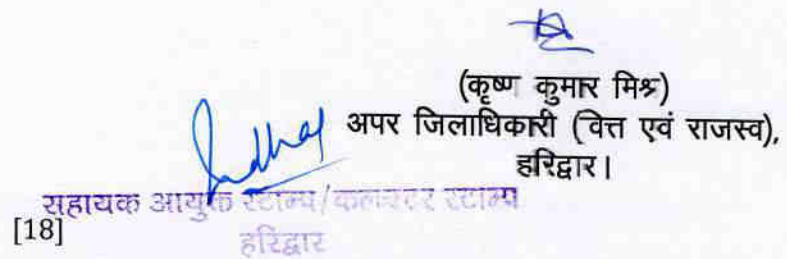 (कृष्ण कुमार मिश्र)
अपर जिलाधिकारी (वित्त एवं राजस्व),
हरिद्वार।
सहायक आयुक्त स्टाम्प/कलक्टर स्टाम्प
हरिद्वार
[18]